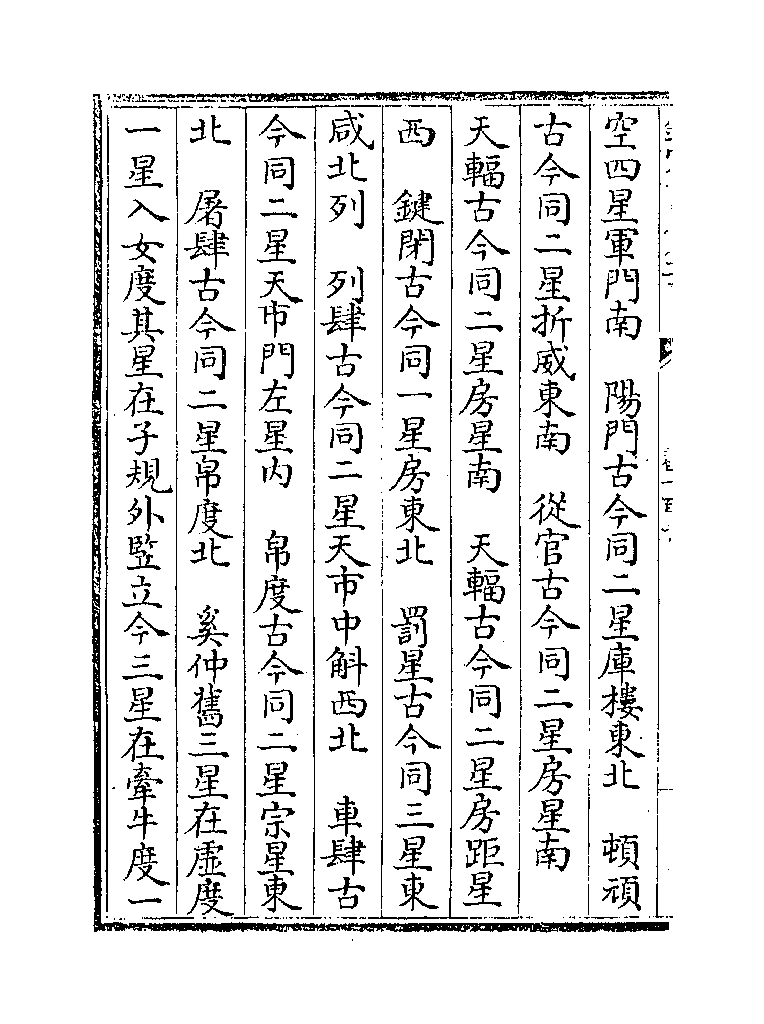 空四星軍門南　陽門古今同二星庫樓東北　頓頑
古今同二星折威東南　從官古今同二星房星南
天輻古今同二星房星南　天輻古今同二星房距星
西　鍵閉古今同一星房東北　罰星古今同三星東
咸北列　列肆古今同二星天市中斛西北　車肆古
今同二星天市門左星內　帛度古今同二星宗星東
北　屠肆古今同二星帛度北　奚仲舊三星在虛度
一星入女度其星在子規外竪立今三星在牽牛度一